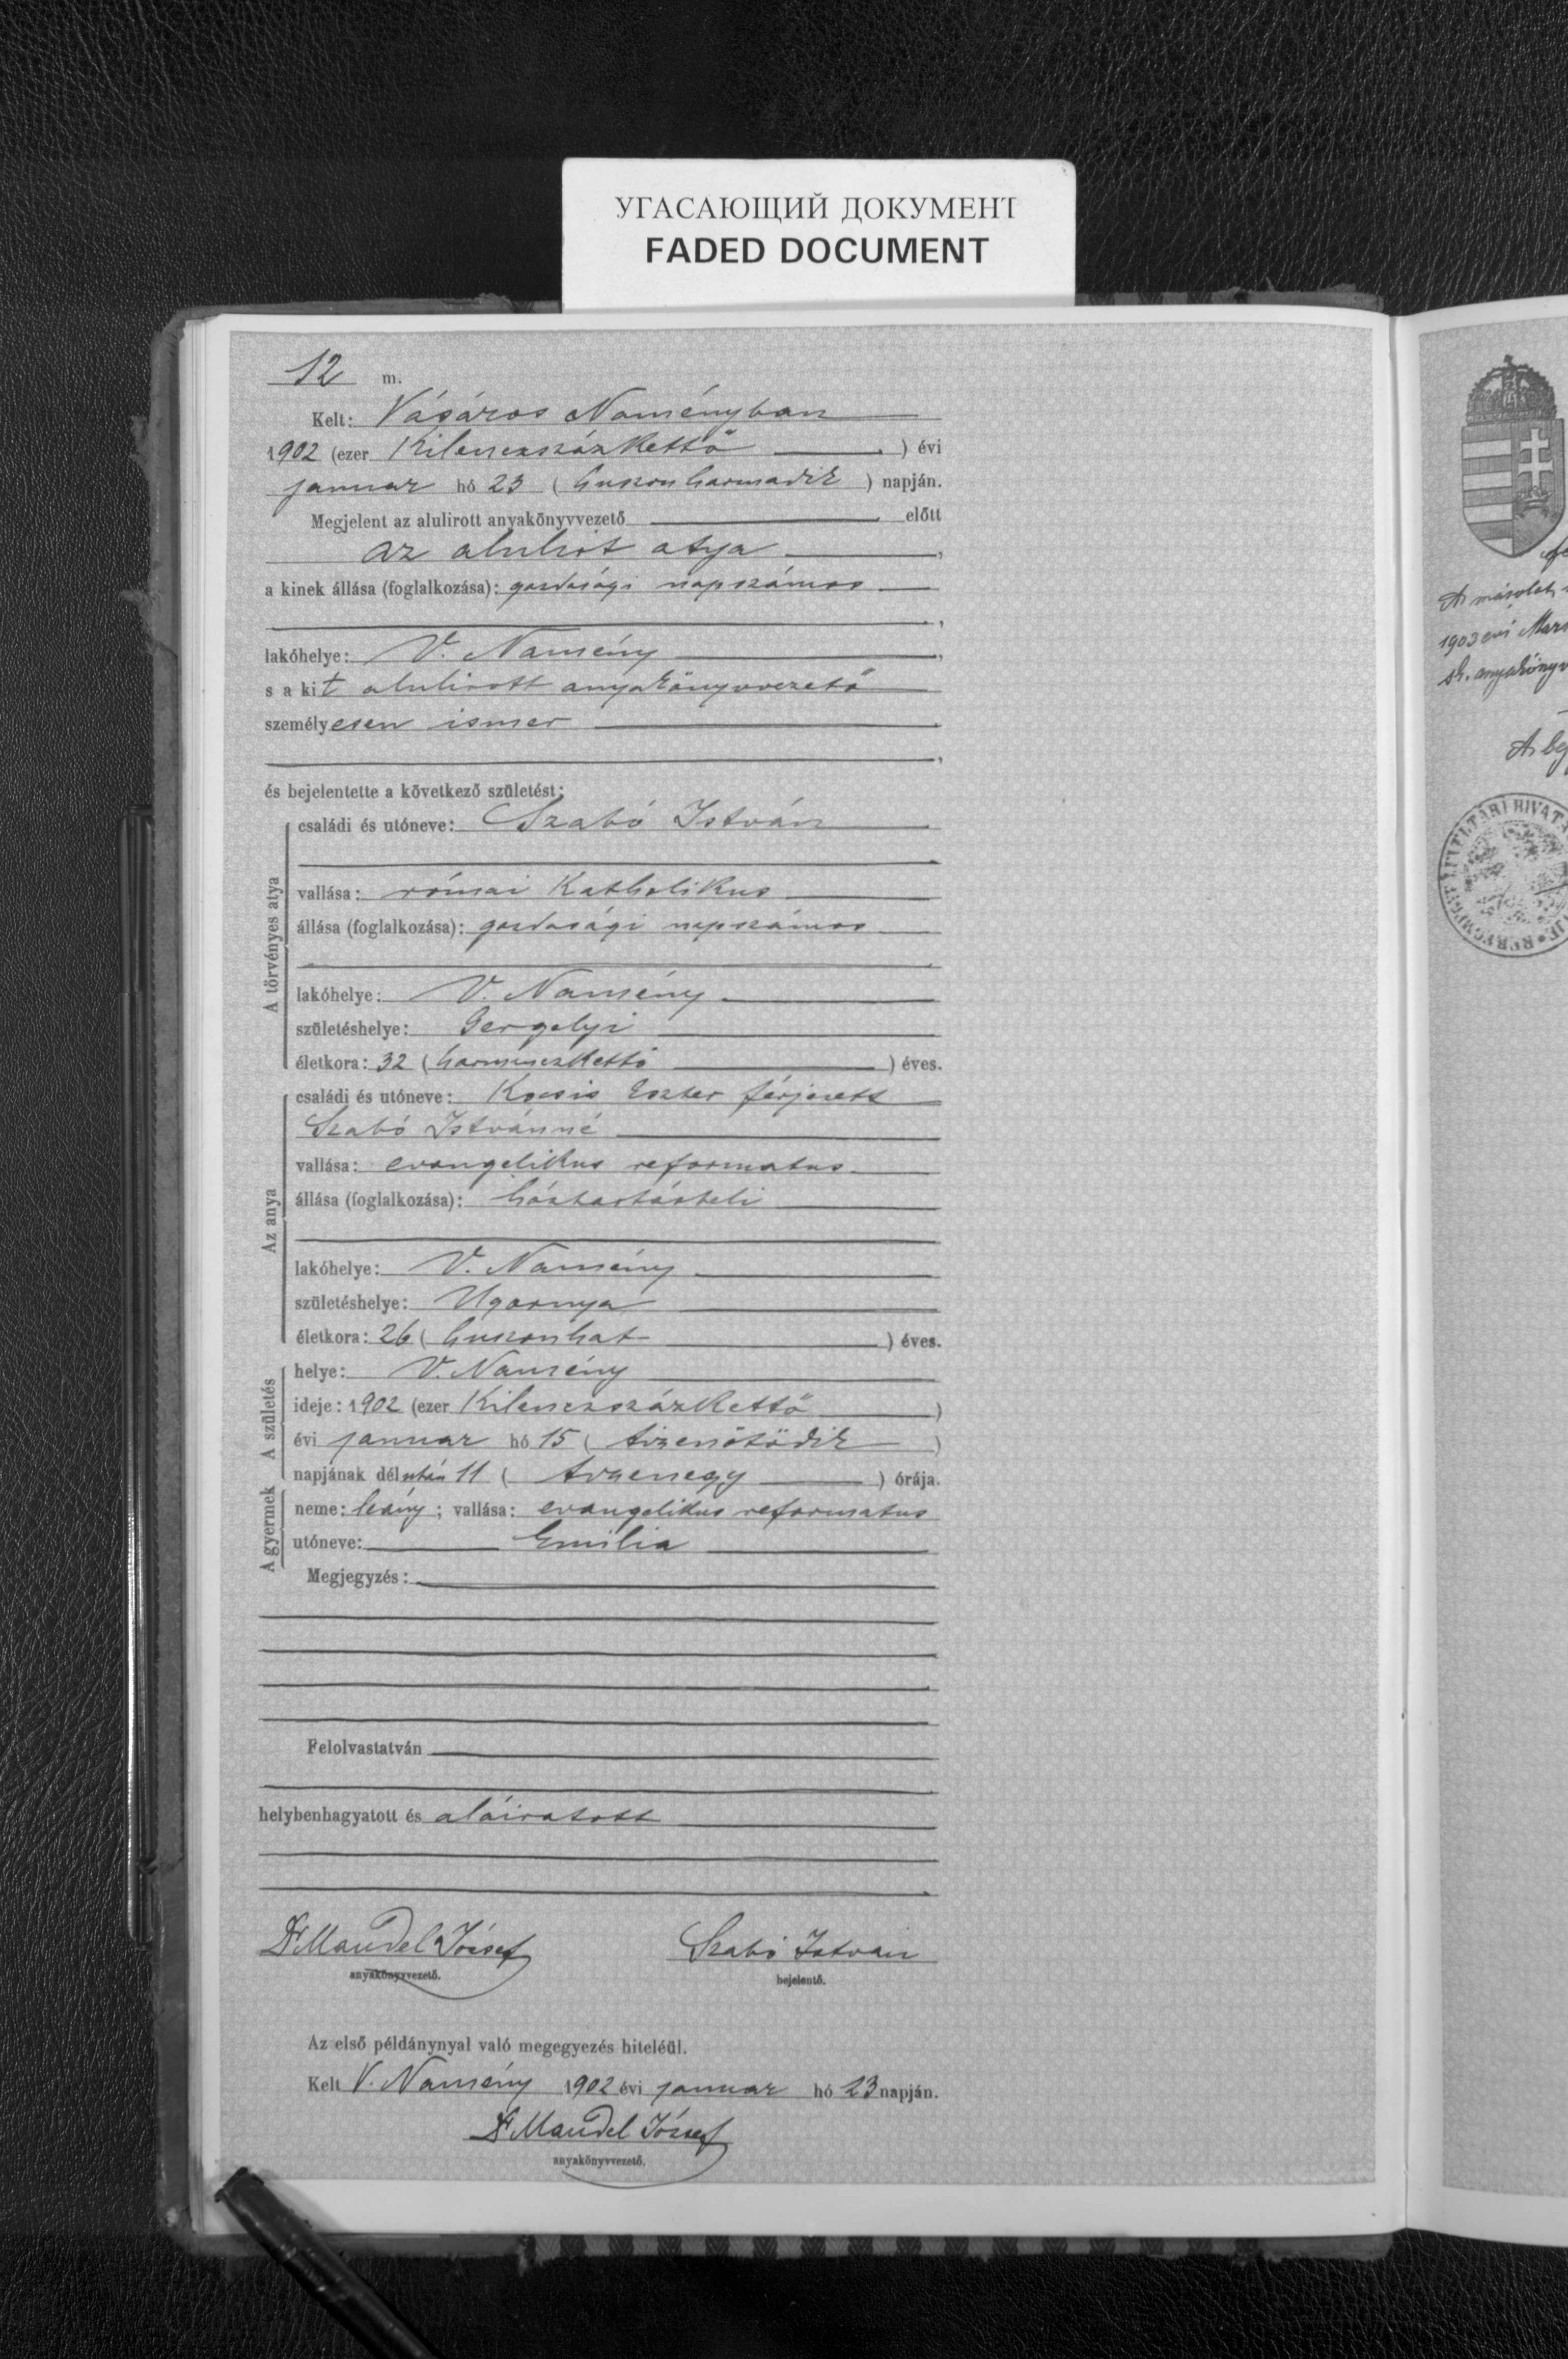 УГАСАЮЩИЙ ДОКУМЕНТ
FADED DOCUMENT
12 m.
Kelt: Vásáros Naményban
1902 (ezer Kilenczszázkettő ) évi
januar hó 23 (huszonharmadik) napján.
Megjelent az alulirott anyakönyvvezető előtt
az alulirt atya,
a kinek állása (foglalkozása): gazdasági napszámos
,
lakóhelye: V. Namény,
s a kit alulirott anyakönyvvezető
személyesen ismer
,
és bejelentette a következő születést:
A törvényes atya
családi és utóneve: Szabó István
vallása: római Katholikus
állása (foglalkozása): gazdasági napszámos
lakóhelye: V. Namény
születéshelye: Gergelyi
életkora: 32 (harminczkettő) éves.
Az anya
családi és utóneve: Kocsis Eszter férjezett
Szabó Istvánné
vallása: evangelikus reformatus
állása (foglalkozása): háztartásbeli
lakóhelye: V. Namény
születéshelye: Ugornya
életkora: 26 (huszonhat) éves.
A születés
helye: V. Namény
ideje: 1902 (ezer Kilenczszázkettő)
évi januar hó 15 (tizenötödik)
napjának délután 11 (tizenegy) órája.
A gyermek
neme: leány; vallása: evangelikus reformatus
utóneve: Emilia
Megjegyzés:
Felolvastatván
helybenhagyatott és aláiratott
Dr Mandel József Szabó István
anyakönyvvezető. bejelentő.
Az első példánynyal való megegyezés hiteléül.
Kelt V. Namény 1902 évi januar hó 23 napján.
Dr Mandel József
anyakönyvvezető.
A másolat
1903 évi
A